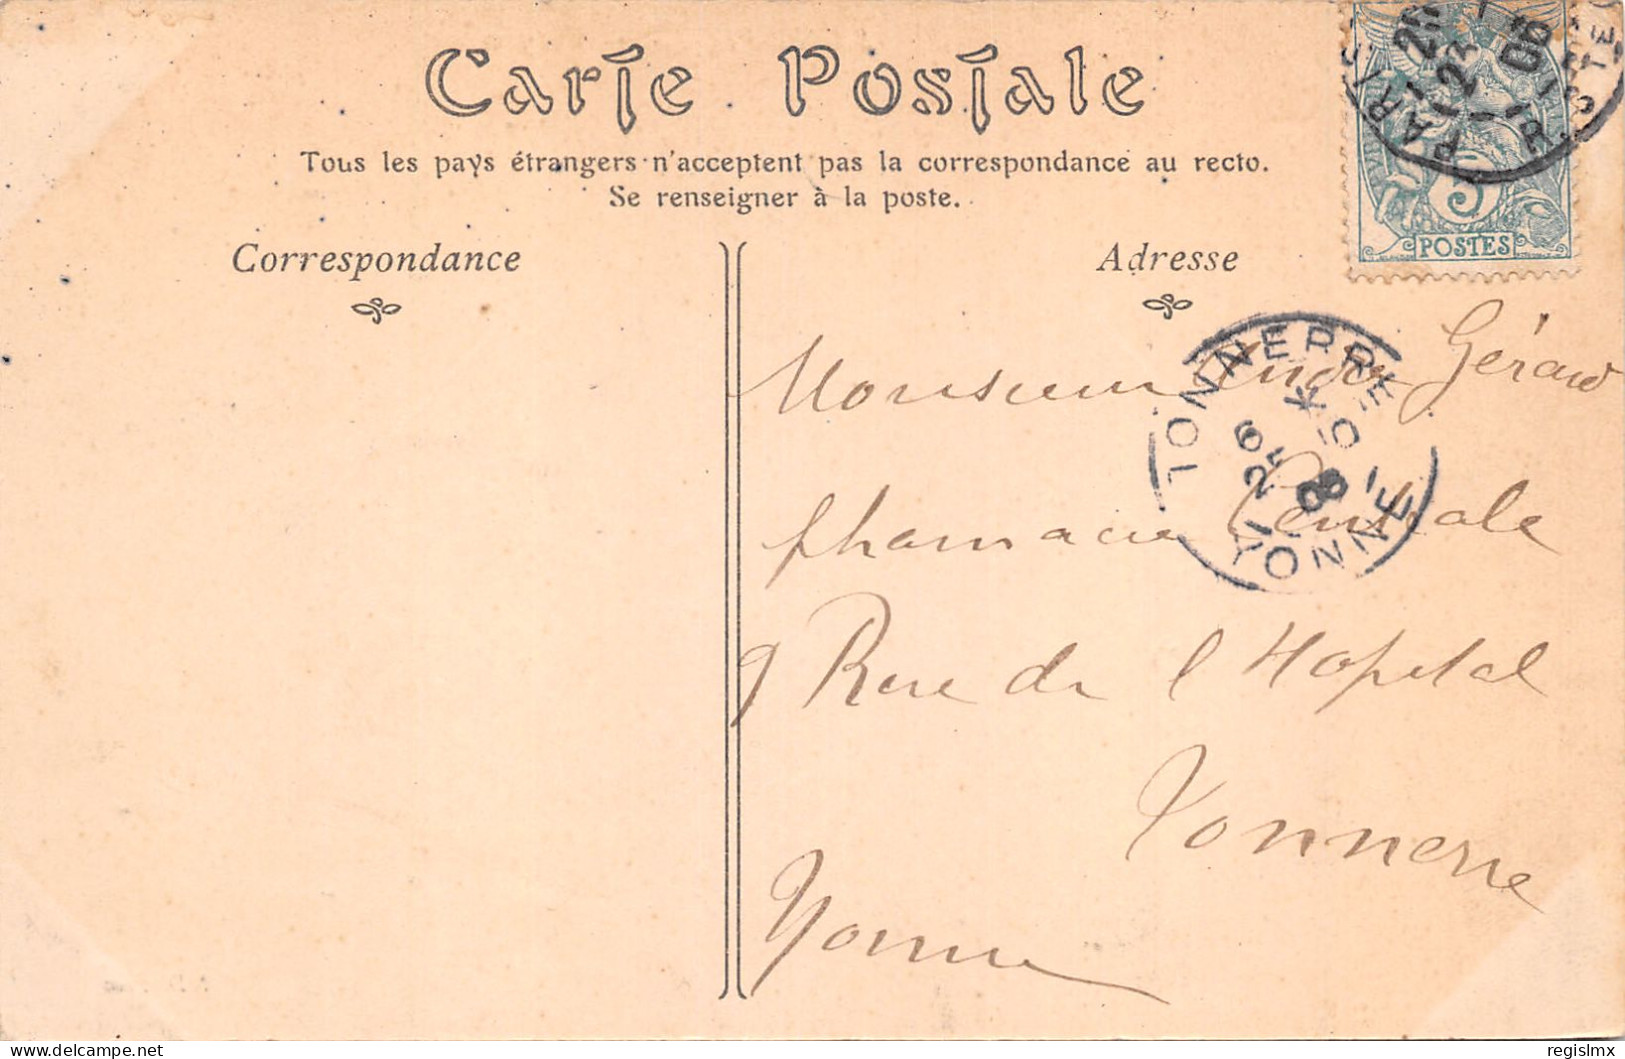 Carte Postale
Tous les pays étrangers n'acceptent pas la correspondance au recto.
Se renseigner à la poste.
Correspondance
Adresse
5
POSTES
PARIS
TONNERRE
YONNE
Monsieur Gérard
pharmacie Centrale
9 Rue de l Hopital
Tonnerre
Yonne
delcampe.net
regislmx